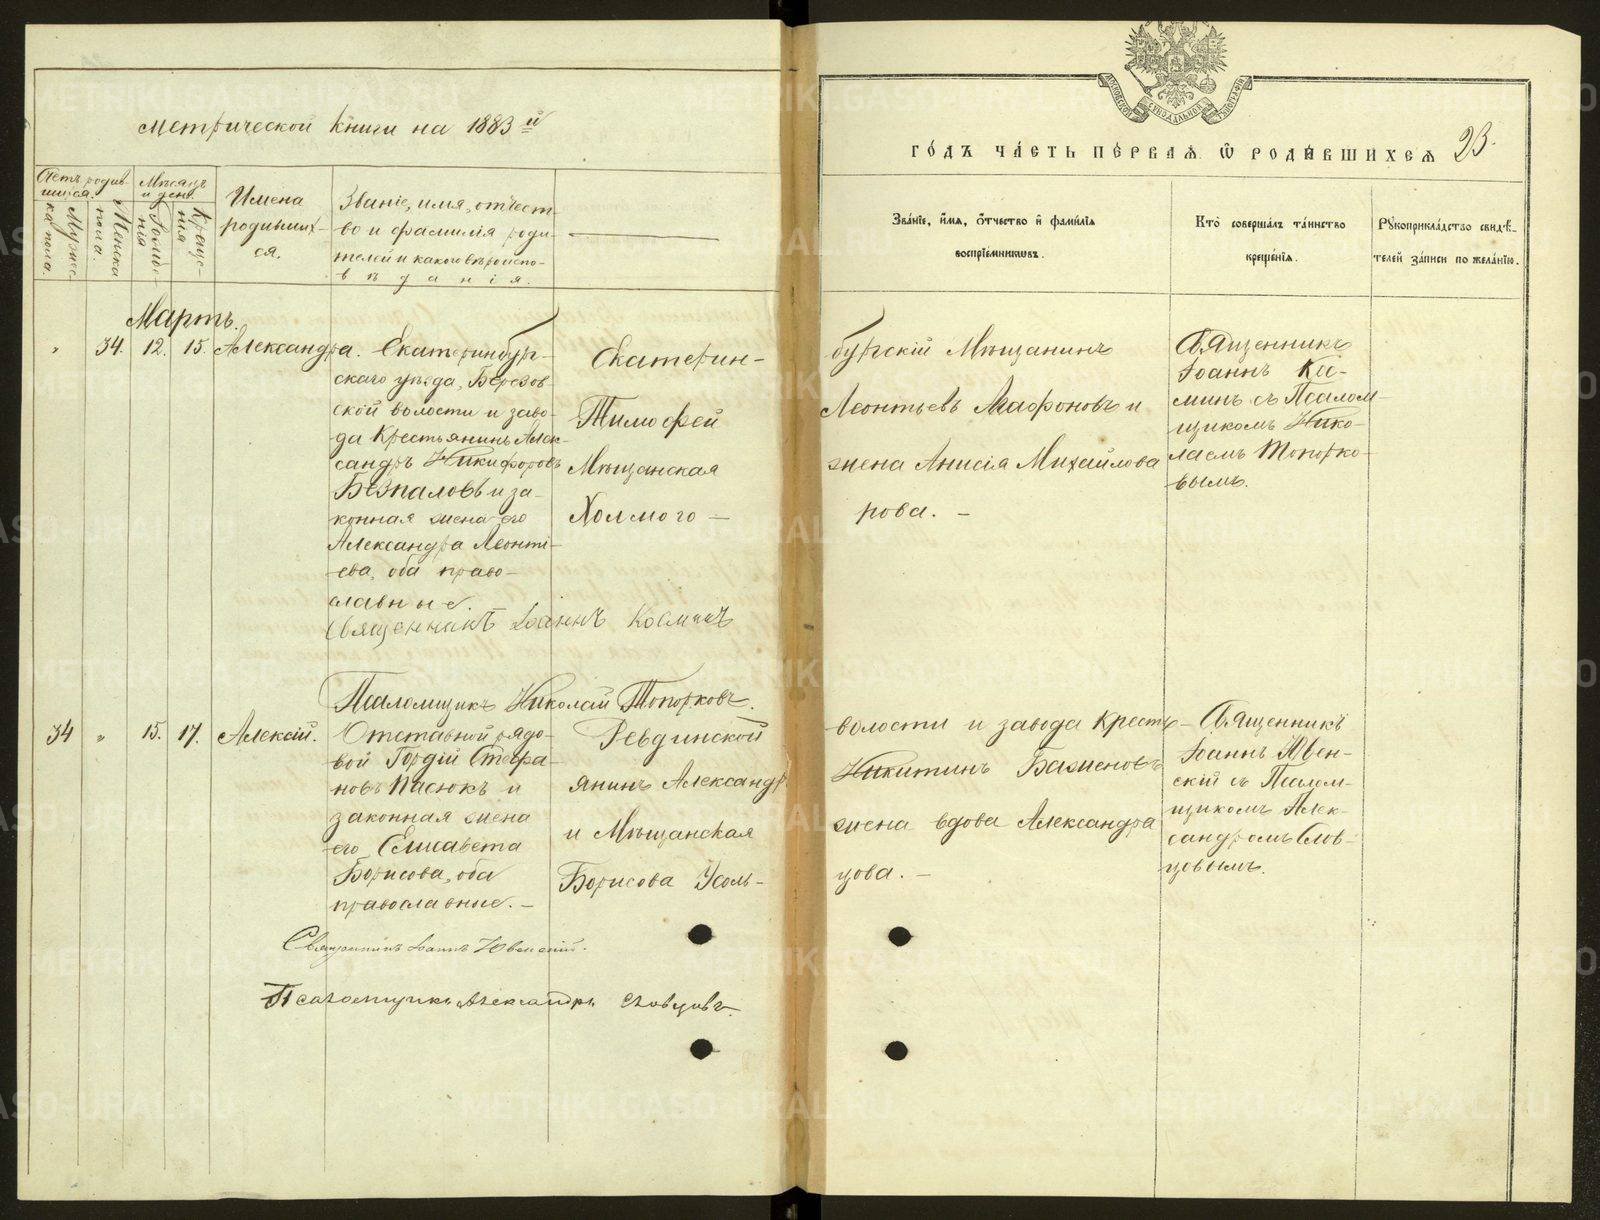 Метрической книги на 1883 й
Годъ часть первая ѿ родившихся 23.
Счетъ родив-
шихся.
Мужес-
ка пола.
Женска
пола.
Мѣсяцъ
и день.
Рожде-
нія
Креще-
нія
Имена
родивших-
ся.
Званіе, имя, отчест-
во и фамилія роди-
телей и какого вѣроиспо-
вѣданія.
Званіе, имя, отчество и фамилія
воспріемниковъ.
Кто совершалъ таинство
крещенія.
Рукоприкладство свидѣ-
телей записи по желанію.
Мартъ.
" 34. 12. 15. Александра.
Екатеринбург-
скаго уѣзда, Березов-
ской волости и заво-
да Крестьянинъ Алек-
сандръ Никифоровъ
Безпаловъ и за-
конная жена его
Александра Леонті-
ева, оба право-
славные.
Екатерин-
бургскій Мѣщанинъ
Тимофей
Леонтьевъ Агафоновъ и
Мѣщанская
жена Анисія Михайлова
Холмого-
рова. -
Священникъ
Іоаннъ Кос-
минъ съ Псалом-
щикомъ Нико-
лаемъ Топорко-
вымъ.
Священникъ Іоаннъ Косминъ
Псаломщикъ Николай Топорковъ.
34 " 15. 17. Алексій.
Отставной рядо-
вой Гордій Стефа-
новъ Писюкъ и
законная жена
его Елисавета
Борисова, оба
православные. -
Ревдинской
волости и завода Кресть-
янинъ Александръ
Никитинъ Баженовъ
и Мѣщанская
жена вдова Александра
Борисова Усоль-
цова. -
Священникъ
Іоаннъ Ювен-
скій съ Псалом-
щикомъ Алек-
сандромъ Слов-
цовымъ.
Священникъ Іоаннъ Ювенскій.
Псаломщикъ Александръ Словцовъ.
METRIKI.GASO-URAL.RU